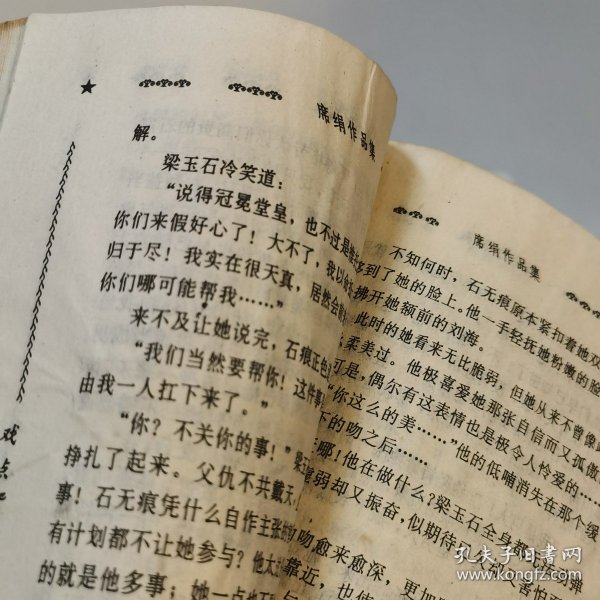 席绢作品集
解。
梁玉石冷笑道：
“说得冠冕堂皇，也不过是
你们来假好心了！大不了，我以
归于尽！我实在很天真，居然会
你们哪可能帮我……”
来不及让她说完，石痕正色
“我们当然要帮你！这件事
由我一人扛下来了。”
“你？不关你的事！”梁
挣扎了起来。父仇不共戴天
事！石无痕凭什么自作主张的
有计划都不让她参与？他大
的就是他多事；她一点也不
戏点
席绢作品集
不知何时，石无痕原本紧扣着她双
移到了她的脸上。他一手轻抚她粉嫩的脸
拂开她额前的刘海。
此时的她看来无比脆弱，但她从来不曾像
柔美过。他极喜爱她那张自信而又孤傲
可是，偶尔有这表情也是极令人怜爱的……
“你这么的美……”他的低喃消失在那个缓
下的吻之后……
哪！他在做什么？梁玉石全身都
弱却又振奋，似期待
吻愈来愈深，更加
靠近，也使
孔夫子旧书网
www.kongfz.com